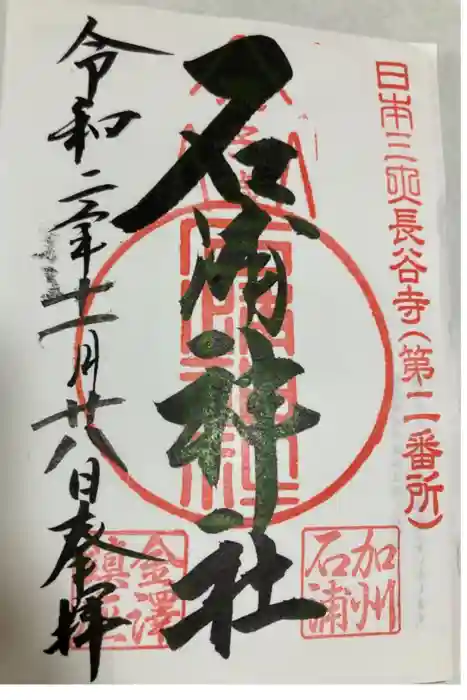 日本三大長谷寺(第二番所)
石浦神社
加州
石浦
令和二年十一月廿八日奉拝
金澤
鎮座